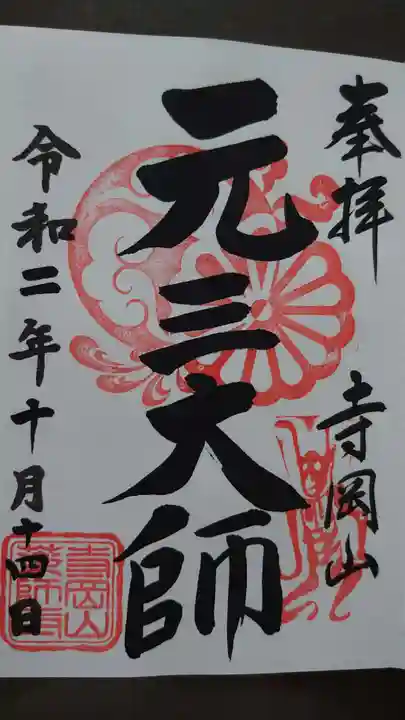 奉拝
寺岡山
元三大師
令和二年十月十四日
寺岡山
薬師寺